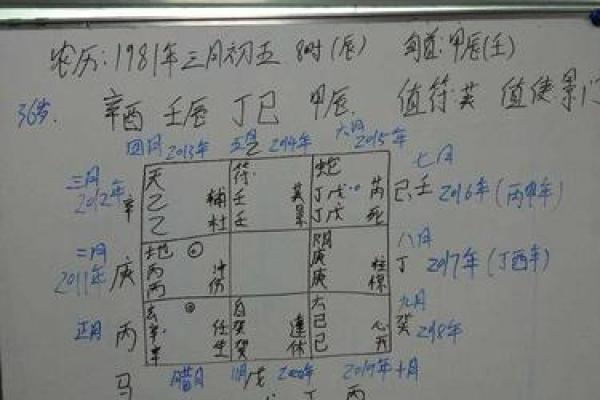 农历:1981年三月初五 8时(辰) 旬首:甲辰(壬)
36岁. 辛酉 壬辰 丁巳 甲辰. 值符:英 值使:景门
四月 2013年 五月 乙 2014年 六月 2015年
三月 2012年 辛
天 乙 辅 乙 杜
符 壬 英 壬 景
蛇 丁戊 芮 丁戊 死
己壬 七月 2016年(丙申年)
二月 2011年 庚
地 丙 冲 丙 伤
阴 庚 柱 庚
丁 八月 2017年(丁酉年)
正月 丙
玄 辛 任 辛 生
白 癸 癸 休
六 己 心 己 开
癸 九月
马 腊月 戊 2019年 十月
丁 丙